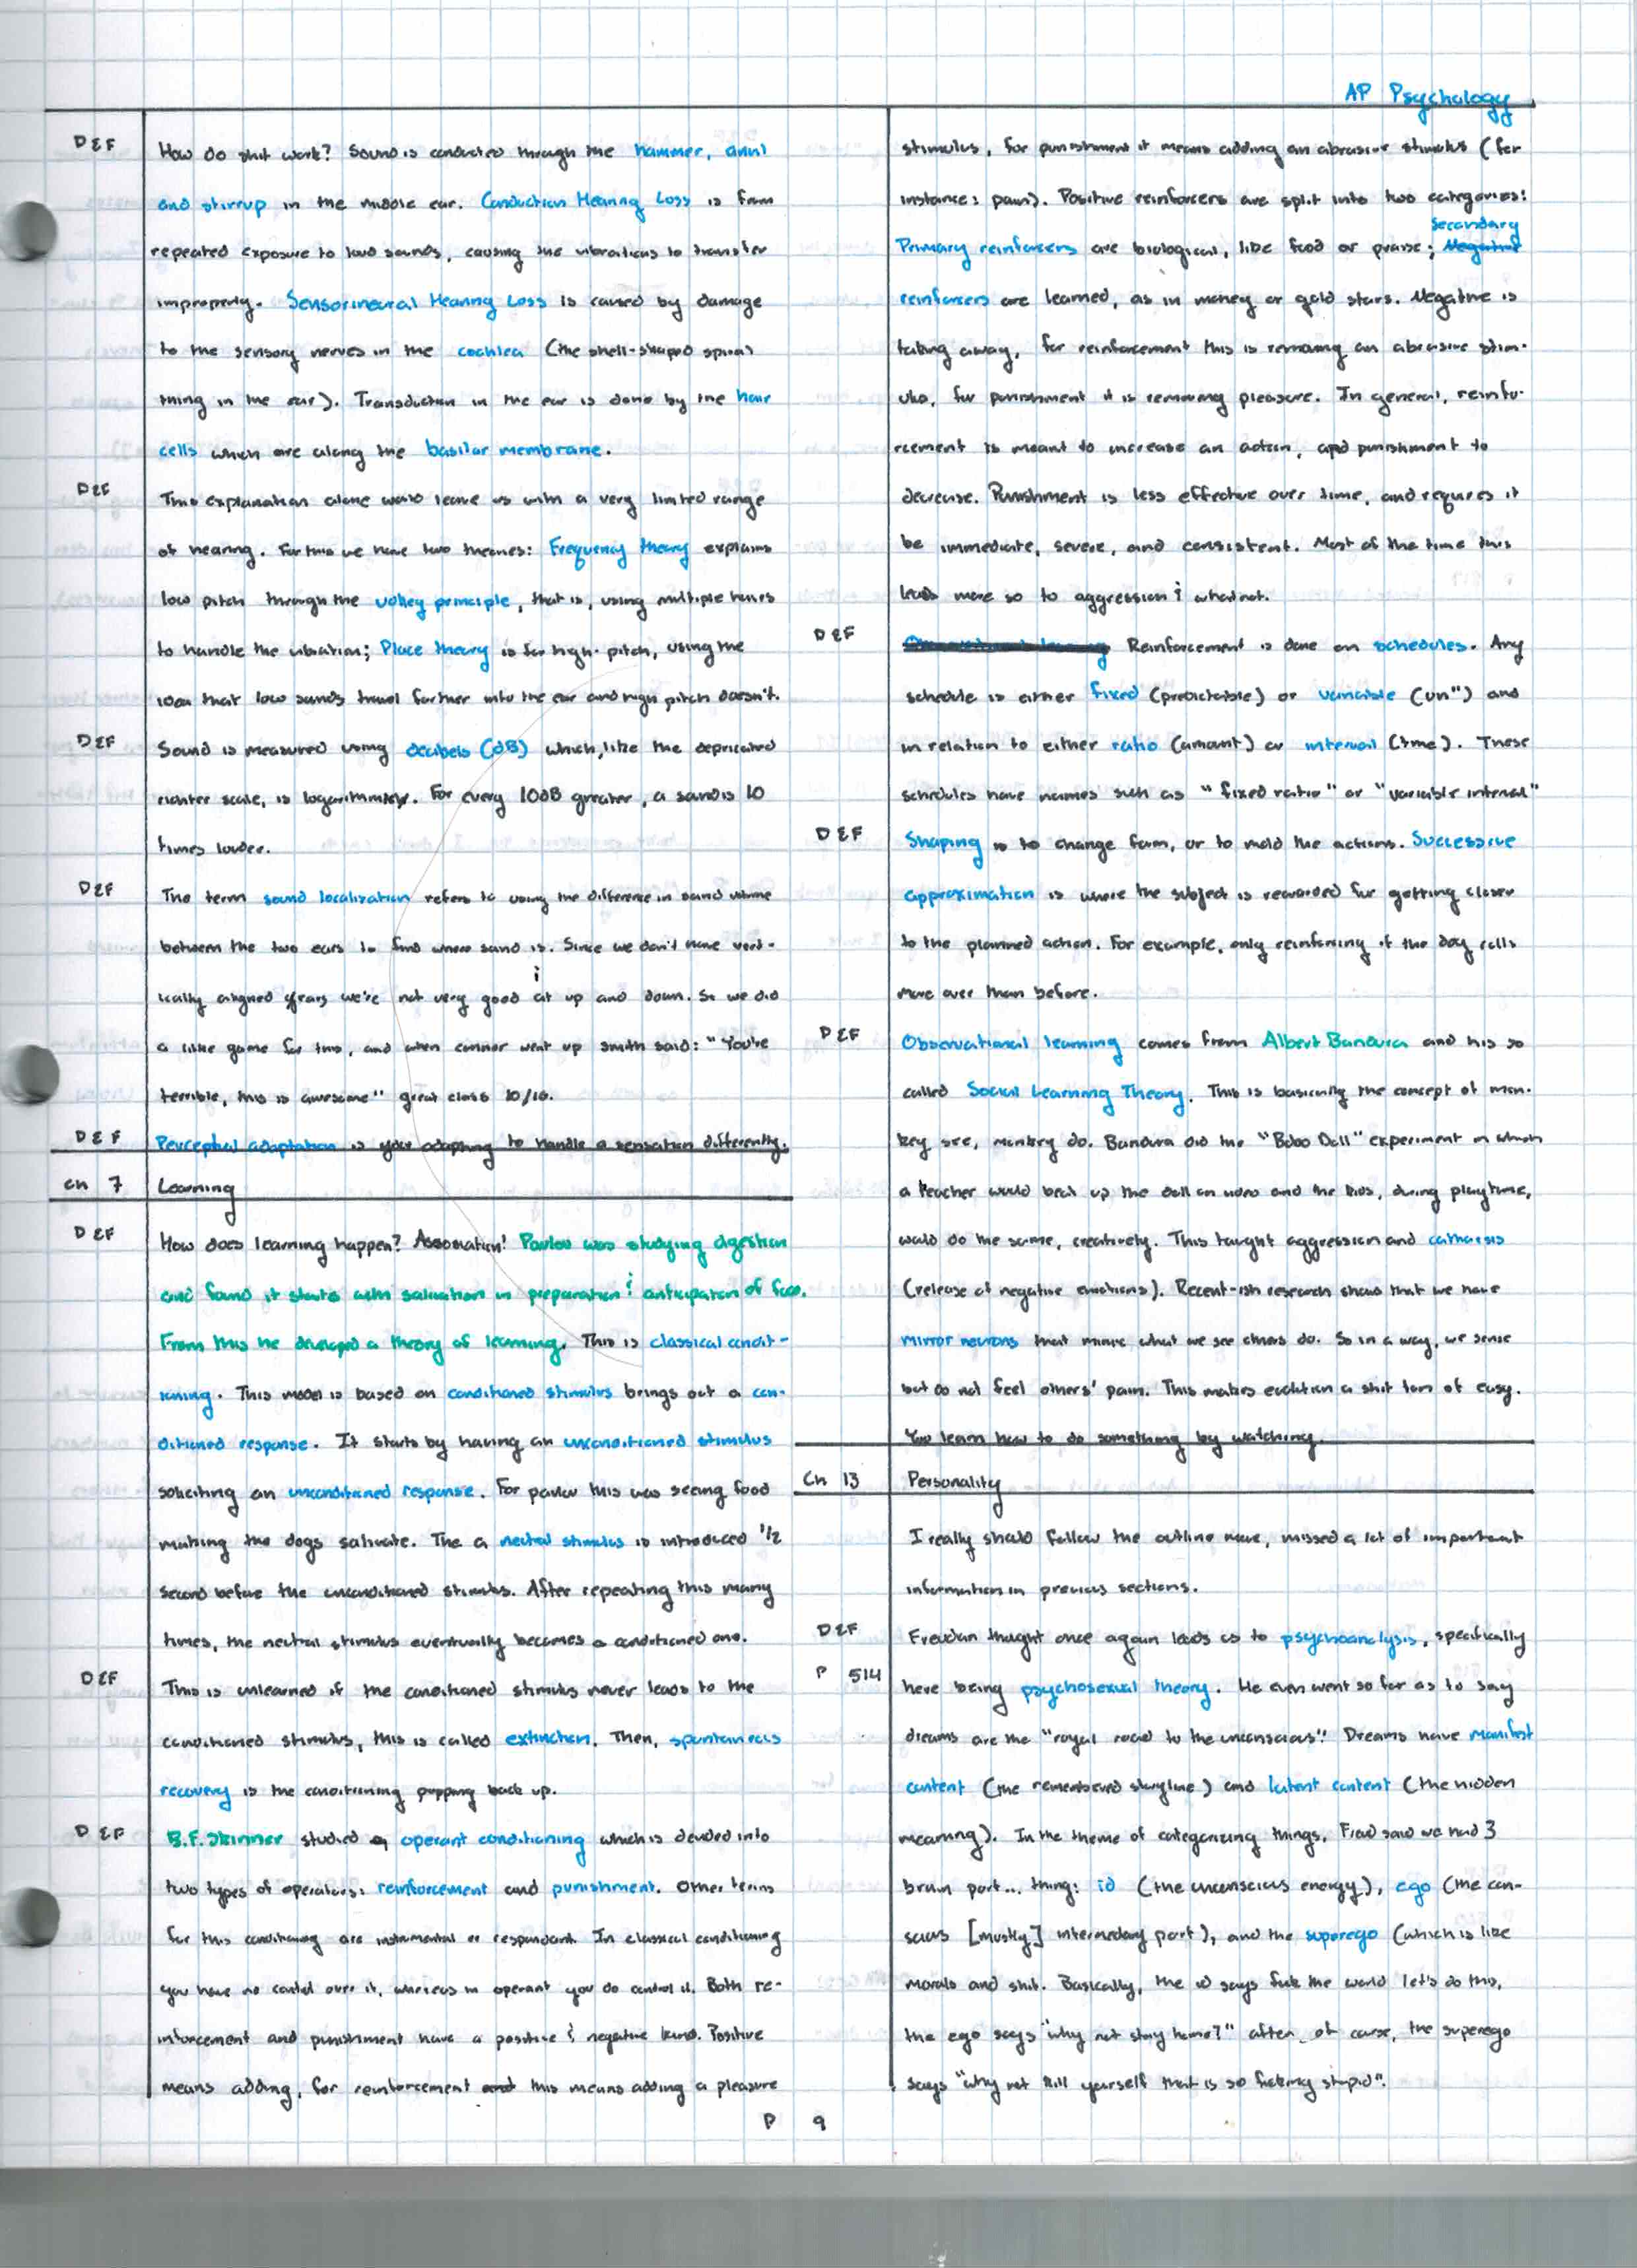 AP Psychology
DEF How do shit work? Sound is conducted through the hammer, anvil
and stirrup in the middle ear. Conduction Hearing Loss is from
repeated exposure to loud sounds, causing the vibrations to transfer
improperly. Sensorineural Hearing Loss is caused by damage
to the sensory nerves in the cochlea (the shell-shaped spiral
thing in the ear). Transduction in the ear is done by the hair
cells which are along the basilar membrane.
DEF This explanation alone would leave us with a very limited range
of hearing. For this we have two theories: Frequency theory explains
low pitch through the volley principle, that is, using multiple
to handle the vibration; Place theory is for high-pitch, using the
idea that low sounds travel farther into the ear and high pitch doesn't.
DEF Sound is measured using decibels (dB) which, like the depricated
richter scale, is logarithmic. For every 10dB greater, a sound is 10
times louder.
DEF The term sound localization refers to using the difference in sound volume
between the two ears to find where sound is. Since we don't have vert-
ically aligned ears we're not very good at up and down. So we did
a little game for this, and when connor went up smith said: "You're
terrible, this is awesome" great class 10/10.
DEF Perceptual adaptation is your adapting to handle a sensation differently.
Ch 7 Learning
DEF How does learning happen? Association! Pavlov was studying digestion
and found it starts with salivation in preparation & anticipation of food.
From this he developed a theory of learning. This is classical condit-
ioning. This model is based on conditioned stimulus brings out a con-
ditioned response. It starts by having an unconditioned stimulus
soliciting an unconditioned response. For pavlov this was seeing food
making the dogs salivate. The a neutral stimulus is introduced 1/2
second before the unconditioned stimulus. After repeating this many
times, the neutral stimulus eventually becomes a conditioned one.
DEF This is unlearned if the conditioned stimulus never leads to the
conditioned stimulus, this is called extinction. Then, spontaneous
recovery is the conditioning popping back up.
DEF B.F. Skinner studied operant conditioning which is devided into
two types of operators: reinforcement and punishment. Other terms
for this conditioning are instrumental or respondant. In classical conditioning
you have no control over it, whereas in operant you do control it. Both re-
inforcement and punishment have a positive & negative kind. Positive
means adding, for reinforcement this means adding a pleasure
stimulus, for punishment it means adding an abrasive stimulus (for
instance: pain). Positive reinforcers are split into two categories:
Secondary
Primary reinforcers are biological, like food or praise; Negative
reinforcers are learned, as in money or gold stars. Negative is
taking away, for reinforcement this is removing an abrasive stim-
ulus, for punishment it is removing pleasure. In general, reinfo-
rcement is meant to increase an action, and punishment to
decrease. Punishment is less effective over time, and requires it
be immediate, severe, and consistent. Most of the time this
leads more so to aggression & whatnot.
DEF Reinforcement is done on schedules. Any
schedule is either fixed (predictable) or variable (un") and
in relation to either ratio (amount) or interval (time). These
schedules have names such as "fixed ratio" or "variable interval"
DEF Shaping is to change form, or to mold the actions. Successive
approximation is where the subject is rewarded for getting closer
to the planned action. For example, only reinforcing if the dog rolls
more over than before.
DEF Observational learning comes from Albert Bandura and his so
called Social Learning Theory. This is basically the concept of mon-
key see, monkey do. Bandura did the "Bobo Doll" experiment in which
a teacher would beat up the doll on video and the kids, during playtime,
would do the same, creatively. This taught aggression and catharsis
(release of negative emotions). Recent-ish research shows that we have
mirror neurons that mimic what we see others do. So in a way, we sense
but do not feel others' pain. This makes evolution a shit ton of easy.
You learn how to do something by watching.
Ch 13 Personality
I really should follow the outline more, missed a lot of important
information in previous sections.
DEF Freudian thought once again leads us to psychoanalysis, specifically
P 514 here being psychosexual theory. He even went so far as to say
dreams are the "royal road to the unconscious". Dreams have manifest
content (the remembered storyline) and latent content (the hidden
meaning). In the theme of categorizing things, Freud said we had 3
brain part... thing: id (the unconscious energy), ego (the con-
scious [mostly] intermediary part), and the superego (which is like
morals and shit. Basically, the id says fuck the world let's do this,
the ego says "why not stay home?" often, of course, the superego
says "why not kill yourself that is so fucking stupid".
P 9